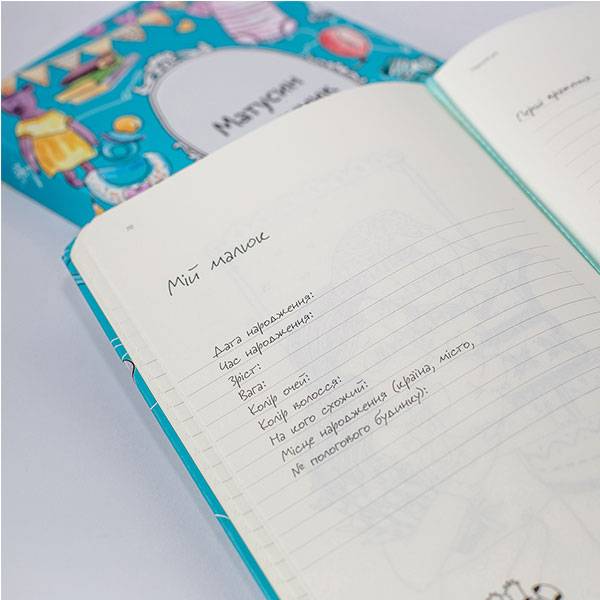 Матусин
Мій малюк
Дата народження:
Час народження:
Зріст:
Вага:
Колір очей:
Колір волосся:
На кого схожий:
Місце народження (країна, місто,
№ пологового будинку):